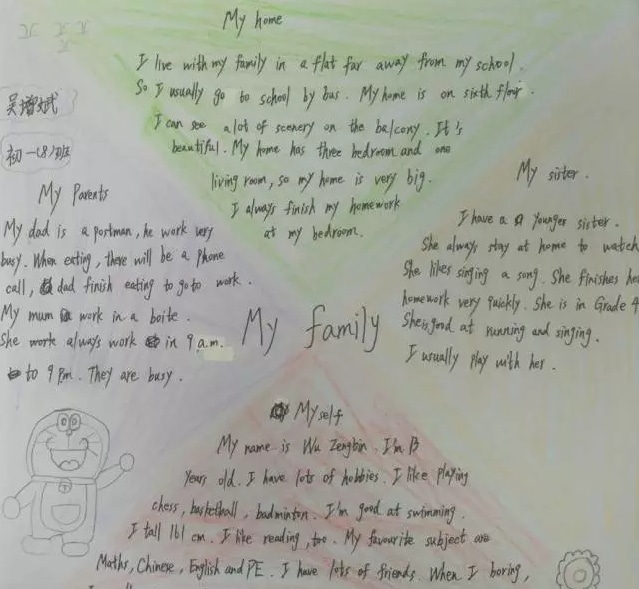 My home
I live with my family in a flat far away from my school.
So I usually go to school by bus. My home is on sixth flour.
I can see a lot of scenery on the balcony. It's
beautiful. My home has three bedroom and one
living room, so my home is very big.
I always finish my homework
at my bedroom.
吴增斌
初一(8)班
My Parents
My dad is a postman, he work very
busy. When eating, there will be a phone
call, dad finish eating to go to work.
My mum work in a boite.
She work always work in 9 a.m.
to 9 pm. They are busy.
My sister.
I have a younger sister.
She always stay at home to watch
She likes singing a song. She finishes her
homework very quickly. She is in Grade 4
She is good at running and singing.
I usually play with her.
My family
Myself
My name is Wu Zengbin. I'm 13
years old. I have lots of hobbies. I like playing
chess, basketball, badminton. I'm good at swimming.
I tall 161 cm. I like reading, too. My favourite subject are
Maths, Chinese, English and PE. I have lots of friends. When I boring,